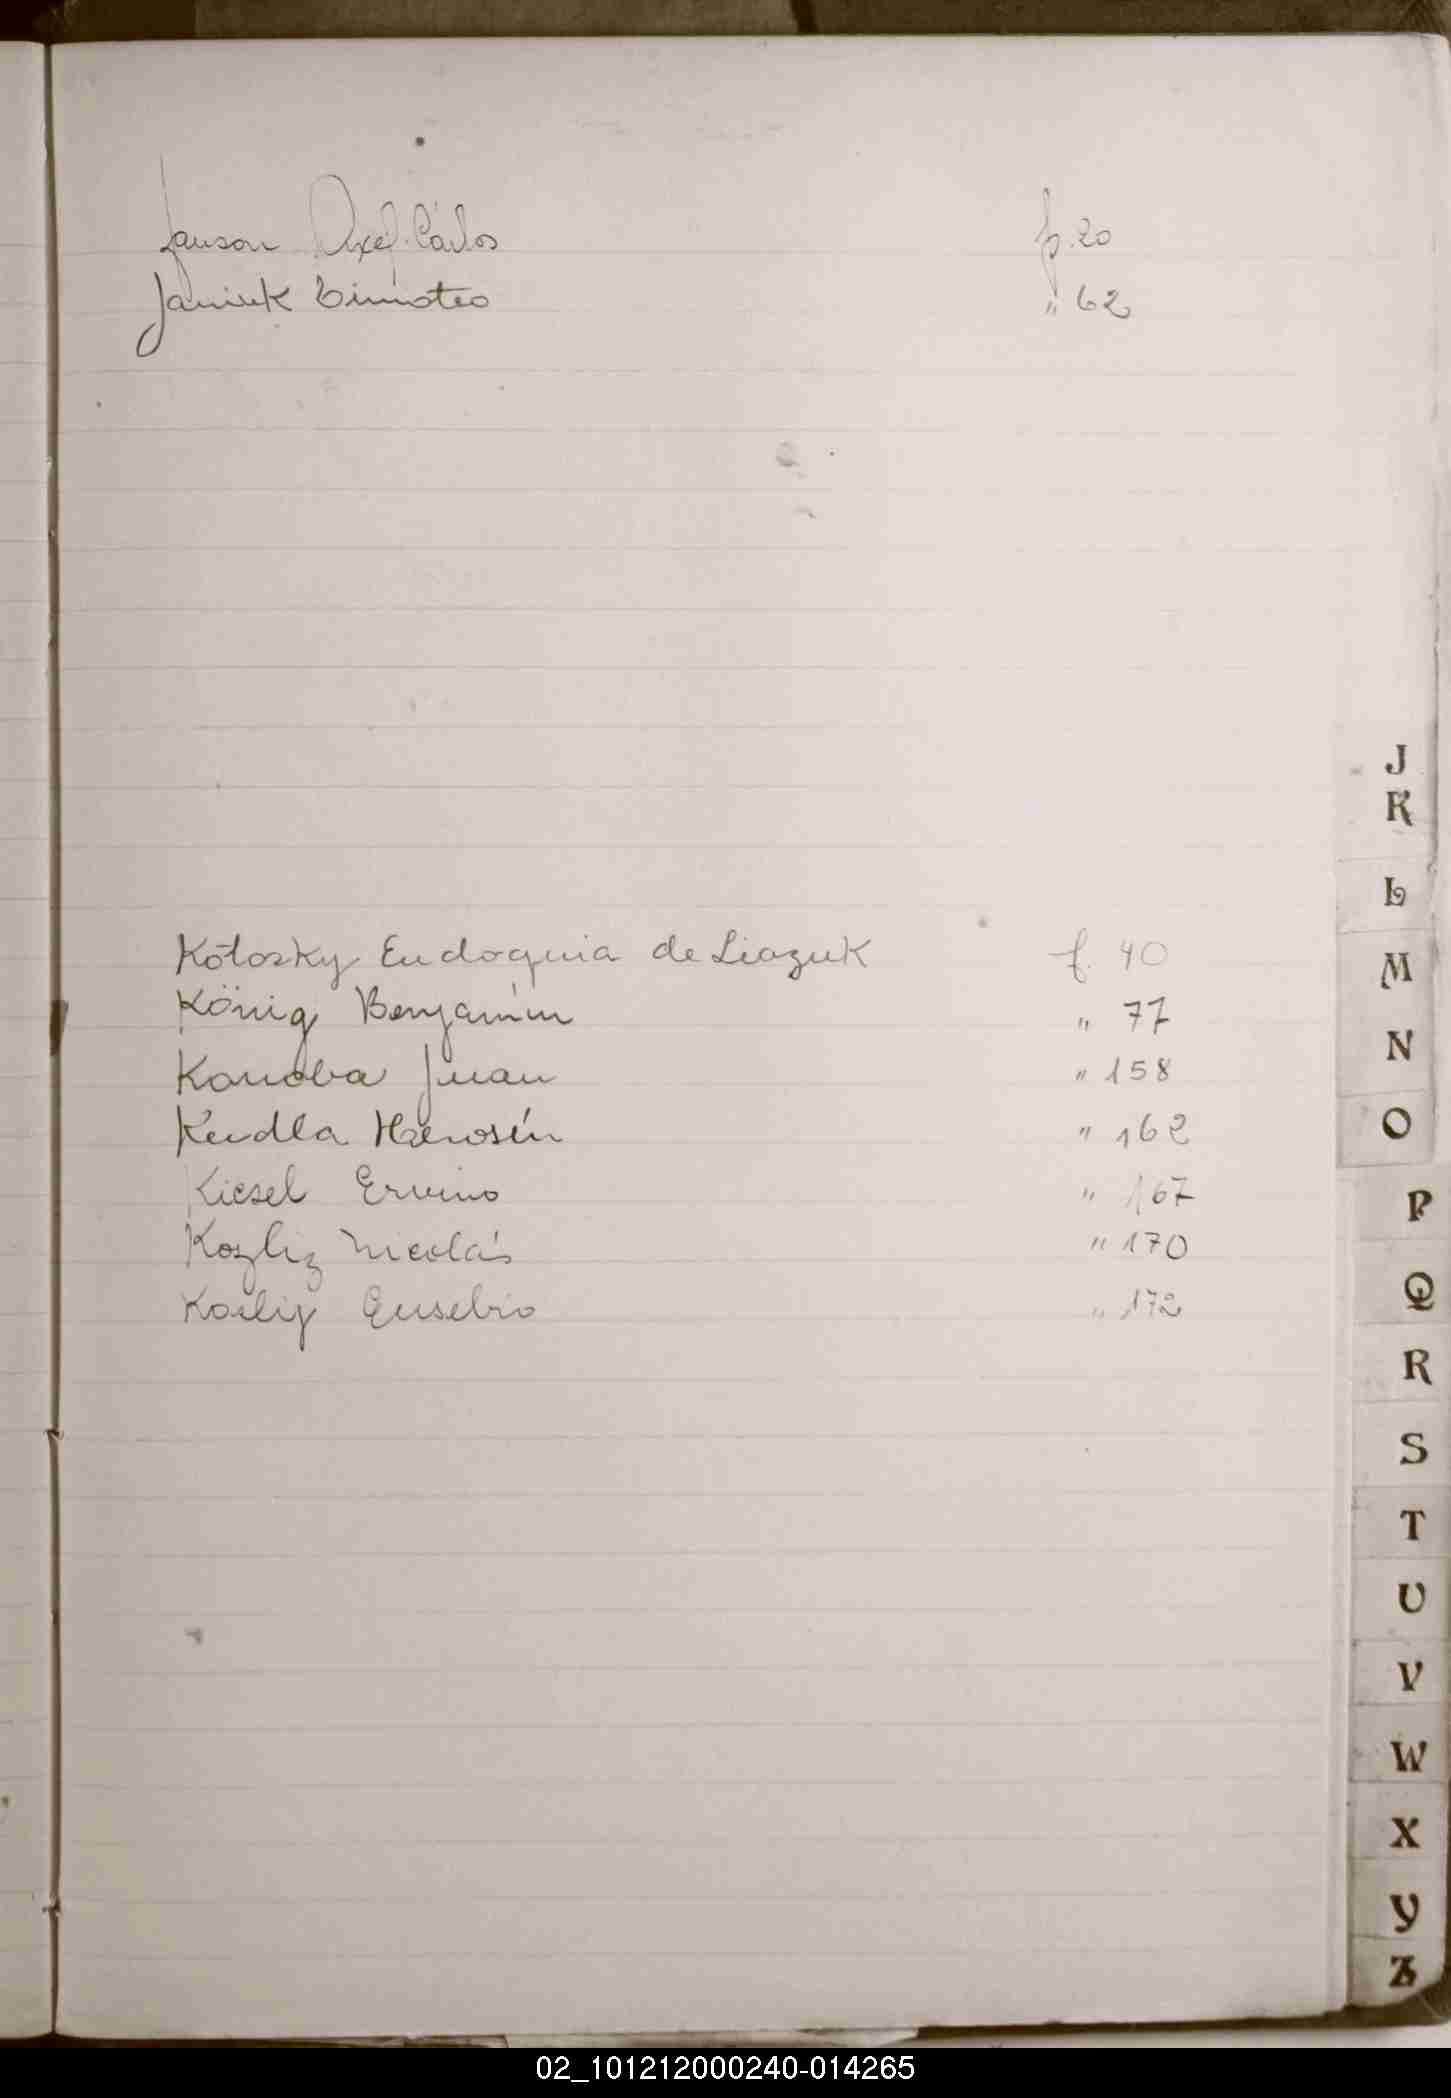 Janson Axel Cárlos f. 20
Janiuk Timoteo " 62
Kotosky Eudoquia de Liazuk f. 40
König Benjamín " 77
Konoba Juan " 158
Kudla " 162
Kiesel Ervino " 167
Kozliz Nicolás " 170
Eusebio " 172
J
K
L
M
N
O
P
Q
R
S
T
U
V
W
X
Y
Z
02_101212000240-014265